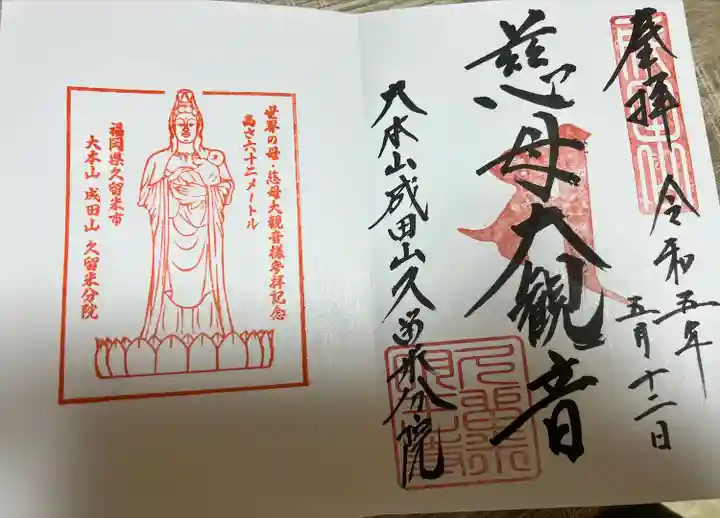 奉拝
令和五年
五月十二日
慈母大観音
大本山成田山久留米分院
世界の母・慈母大観音様参拝記念
高さ六十二メートル
福岡県久留米市
大本山 成田山 久留米分院